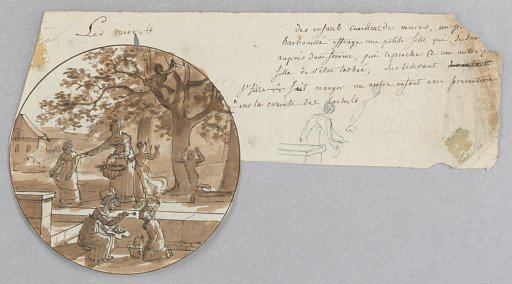 Les mures
des enfants cueillent des mures, un p.
barbouillé effraye une petite fille qui se
auprès d'une femme, qui reproche à une autre
fille de s'être tachée; sur le devant
fille fait manger un autre enfant avec précaution
dans la crainte des taches